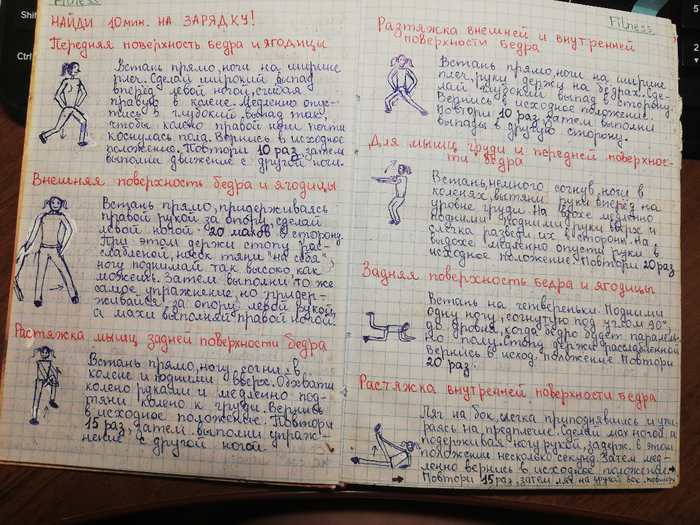 Fitness
НАЙДИ 10 МИН. НА ЗАРЯДКУ!
Передняя поверхность бедра и ягодицы
Встань прямо, ноги на ширине
плеч. Сделай широкий выпад
вперёд левой ногой, сгибая
правую в колене. Медленно опус-
тись в глубокий выпад так,
чтобы колено правой ноги почти
коснулось пола. Вернись в исходное
положение. Повтори 10 раз, затем
выполни движение с другой ноги.
Внешняя поверхность бедра и ягодицы
Встань прямо, придерживаясь
правой рукой за опору, сделай
левой ногой 20 махов в сторону.
При этом держи стопу рас-
слабленной, носок тяни "на себя",
ногу поднимай так высоко, как
можешь. Затем выполни то же
самое упражнение, но придер-
живайся за опору левой рукой,
а махи выполняй правой ногой.
Растяжка мышц задней поверхности бедра
Встань прямо, ногу согни в
колене и подними вверх. Обхвати
колено руками и медленно под-
тяни колено к груди. Вернись
в исходное положение. Повтори
15 раз, затем выполни упраж-
нение с другой ногой.
Fitness
Растяжка внешней и внутренней
поверхности бедра
Встань прямо, ноги на ширине
плеч, руки держи на бедрах. Сде-
лай глубокий выпад в сторону.
Вернись в исходное положение.
Повтори 10 раз, затем выполни
выпады в другую сторону.
Для мышц груди и передней поверхнос-
ти бедра
Встань, немного согнув ноги в
коленях, вытяни руки вперёд на
уровне груди. На вдохе медленно
подними подними руки вверх и
слегка разведи в стороны. На
выдохе медленно опусти руки в
исходное положение. Повтори 20 раз
Задняя поверхность бедра и ягодицы
Встань на четвереньки. Подними
одну ногу, согнутую под углом 90°,
до уровня, когда бедро будет параллель-
но полу. Стопу держи расслабленной
Вернись в исход. положение. Повтори
20 раз.
Растяжка внутренней поверхности бедра
Ляг на бок, слегка приподнявшись и упи-
раясь на предплечье. Сделай мах ногой и
подерживая ногу рукой, задерж. в этом
положении несколько секунд. Затем мед-
ленно вернись в исходное положение.
Повтори 15 раз, затем ляг на другой бок. повтори